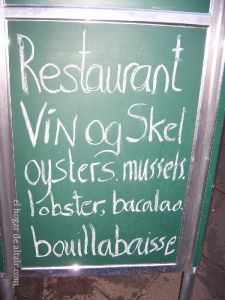 Restaurant
Vin og Skel
oysters. mussels.
lobster, bacalao.
bouillabaisse
el hogar de altair.com